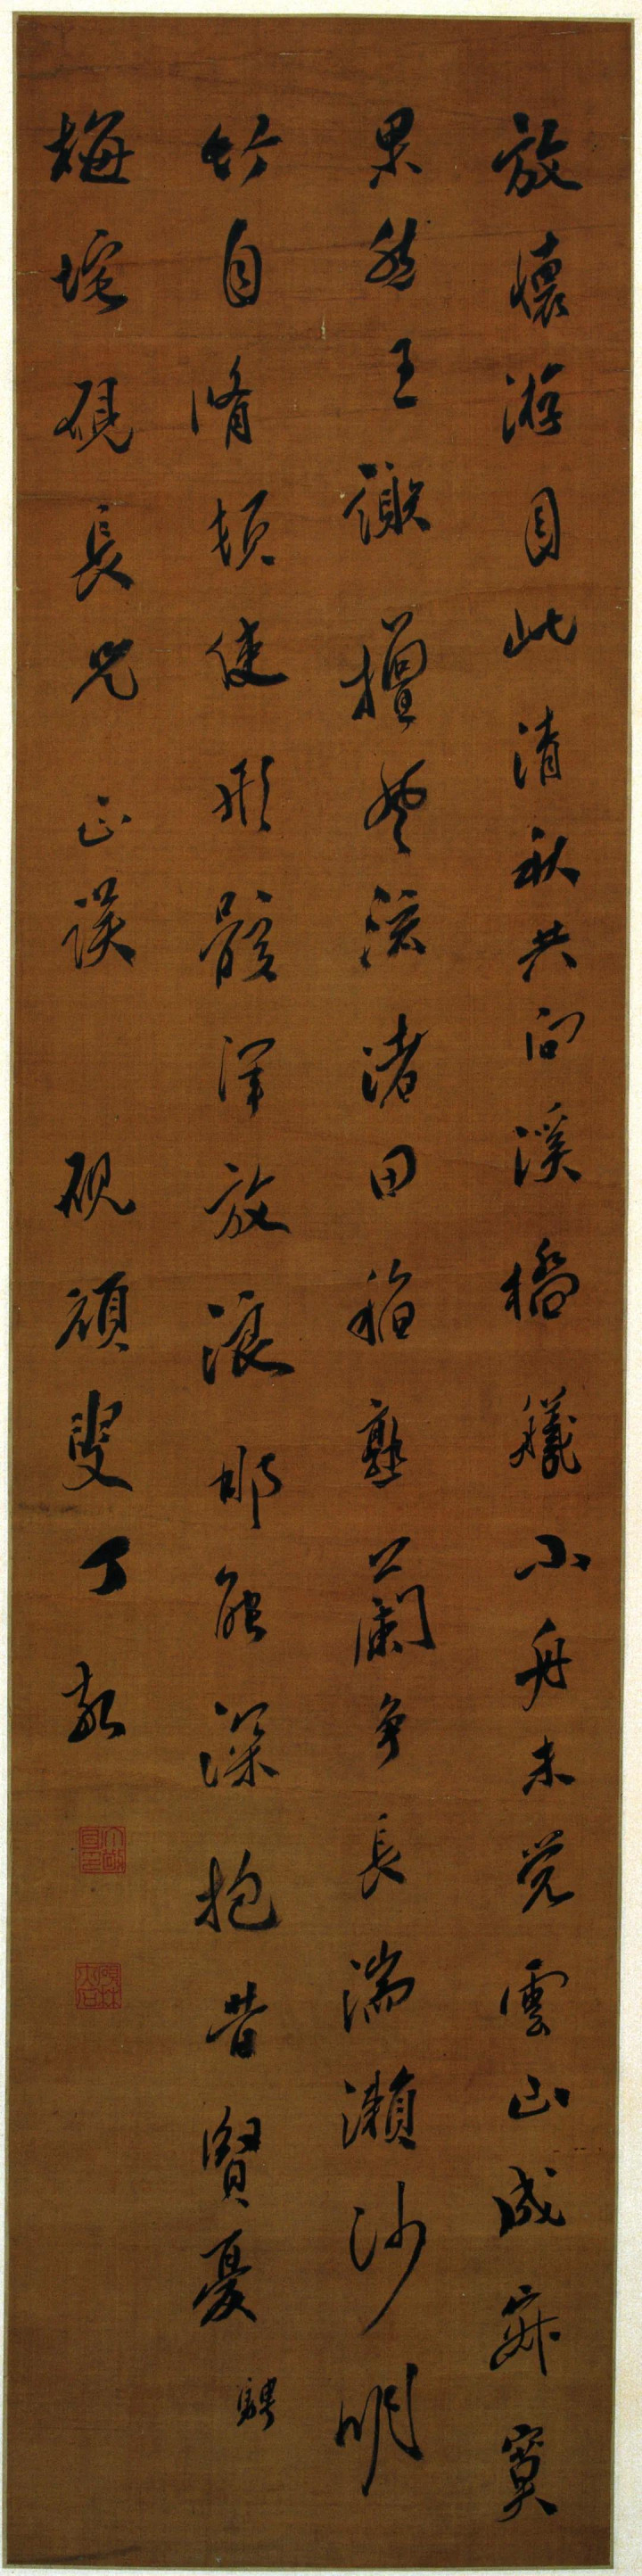 放懷游目此清秋共向溪橋艤小舟未覺雲山成寂寞
果然王謝擅風流渚田稻熟蘭爭長湍瀨沙明
竹自脩頓使形骸渾放浪那能深抱昔賢憂 騁
梅垞硯長兄 正誤 硯頑叟丁敬